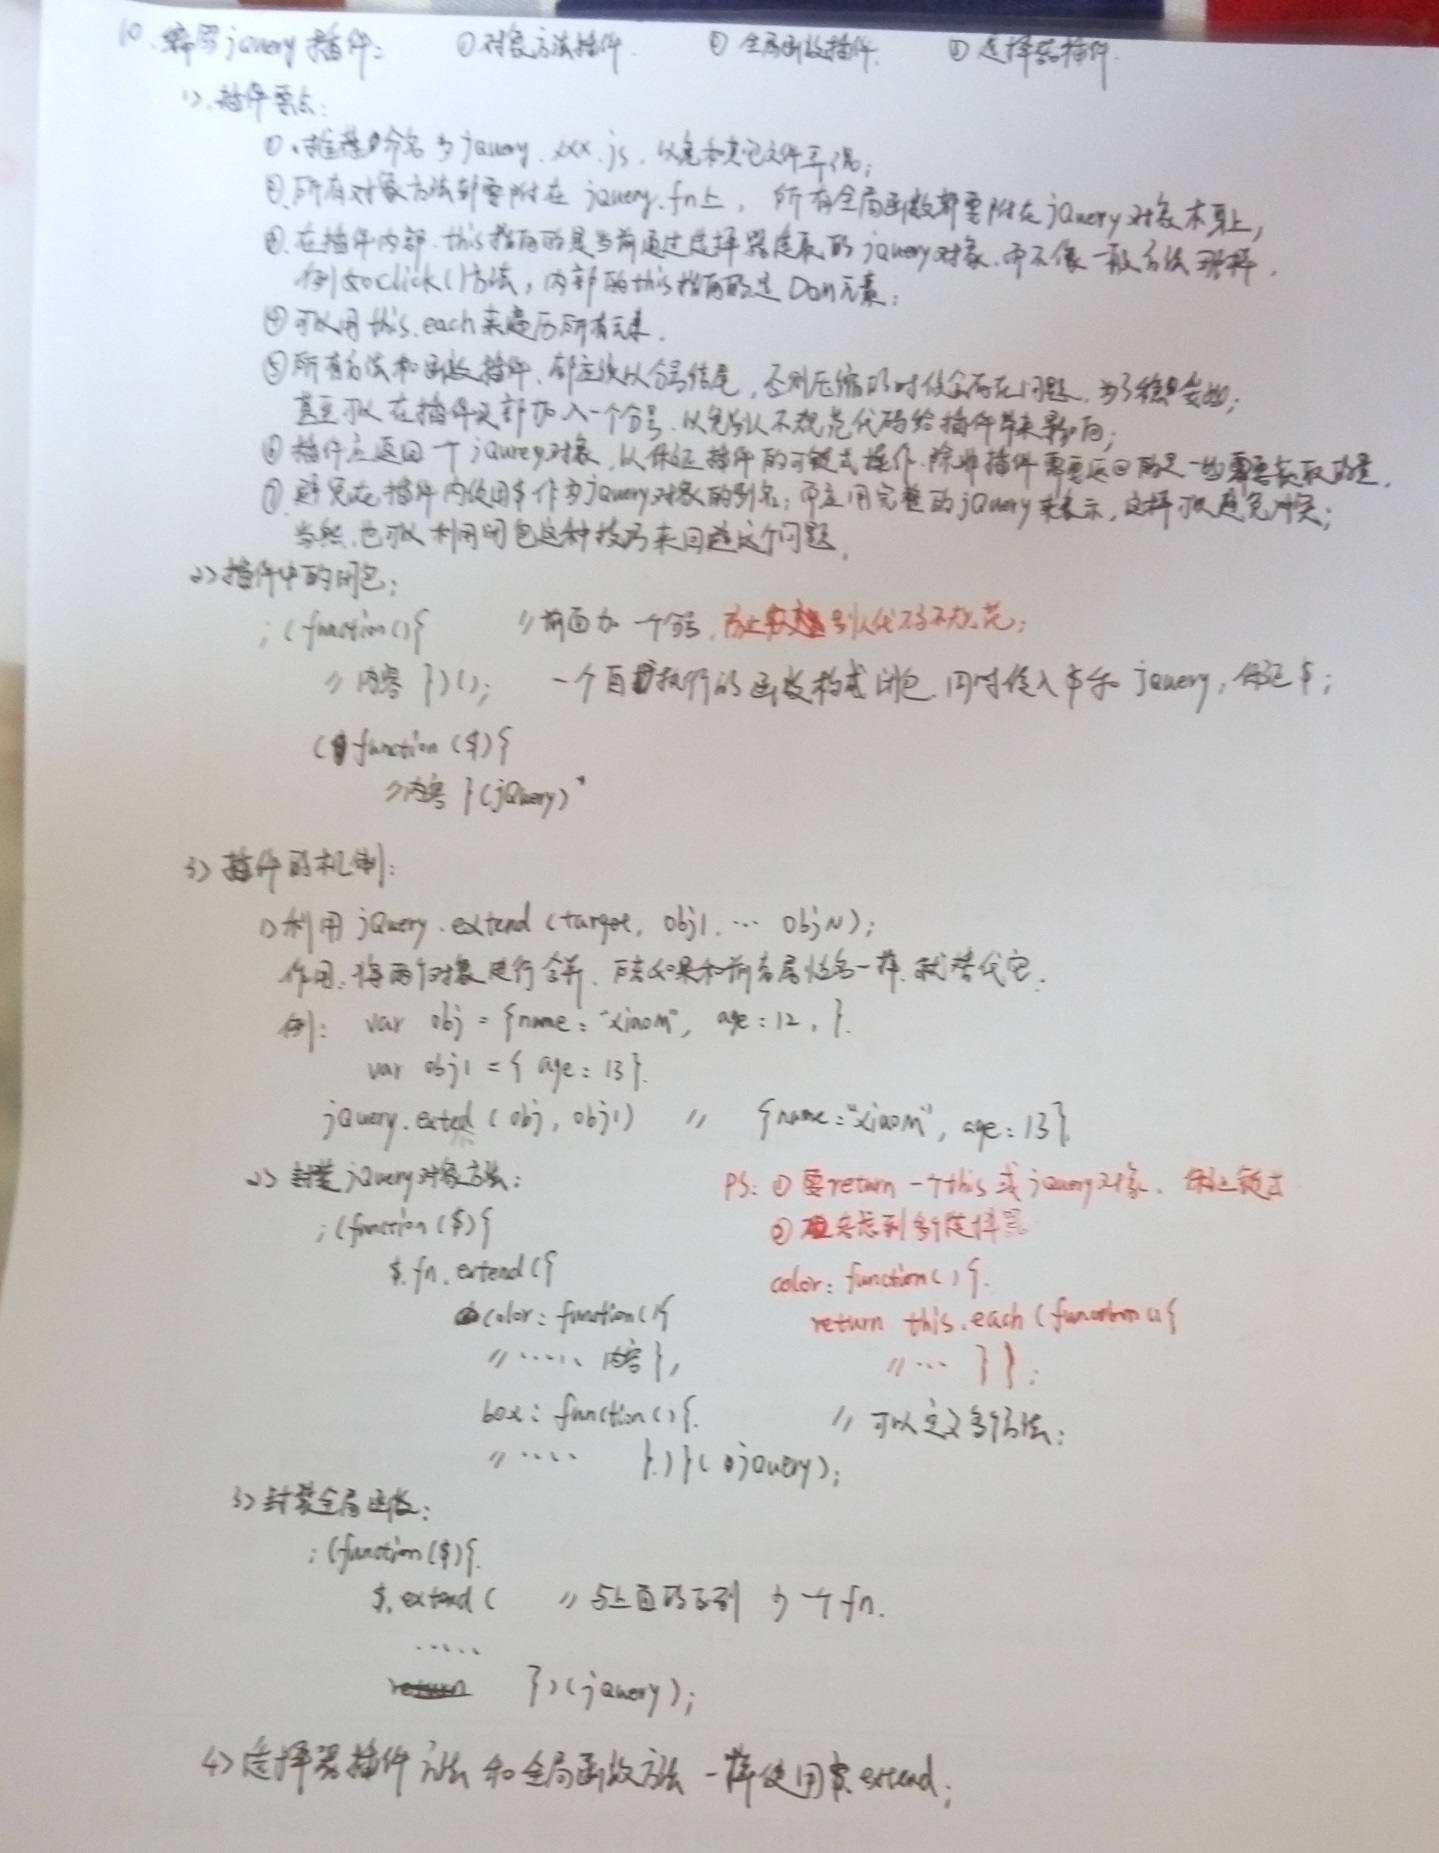 10. 编写jquery插件: ①对象方法插件. ② 全局函数插件. ③ 选择器插件.
1>. 插件要点:
①、推荐命名为jquery.xxx.js, 以免和其它文件弄混;
②. 所有对象方法都要附在 jquery.fn上, 所有全局函数都要附在jQuery对象本身上,
③. 在插件内部. this指向的是当前通过选择器选取的jquery对象. 而不像一般方法那样,
例如click()方法, 内部的this指向的是Dom元素;
④可以用this.each来遍历所有元素.
⑤所有方法和函数插件, 都应该以分号结尾, 否则压缩的时候会存在问题, 为了稳妥些;
甚至可以在插件头部加入一个分号, 以免别人不规范代码给插件带来影响;
⑥ 插件应返回一个jQurey对象, 以保证插件的可链式操作. 除非插件需要返回的是一些需要获取的量.
⑦. 避免在插件内使用$作为jQuery对象的别名; 而应用完整的jQuery来表示, 这样可以避免冲突;
当然, 也可以利用闭包这种技巧来回避这个问题.
2> 插件中的闭包:
; ( function(){ // 前面加一个分号, 防止别人代码不规范;
// 内容 })(); 一个自执行的函数构成闭包. 同时传入$和 jquery, 保证$;
( function ($){
//内容 }(jQuery)
3> 插件的机制:
1>利用 jQuery.extend (target, obj1, ... objN);
作用: 将两个对象进行合并, 后者如果和前者属性名一样. 就替代它.
例: var obj = {name: "xiaom", age: 12, }.
var obj1 = { age: 13}.
jQuery.exted ( obj, obj1) // {name:"xiaom", age: 13}
2> 封装jQuery对象方法: PS: ① 要return 一个this 或 jquery对象. 保证链式
;(function ($){ ② 考虑到多个选择器
$.fn.extend({ color: function(){.
color: function(){ return this.each (function(){
//..... 内容}, // ... } } ;
box: function(){. // 可以定义多个方法;
// .... }.)}( jQuery);
3> 封装全局函数:
; (function ($){.
$.extend ( // 与上面的区别 少一个fn.
.....
return })(jQuery);
4> 选择器插件方法和全局函数方法一样使用$.extend;